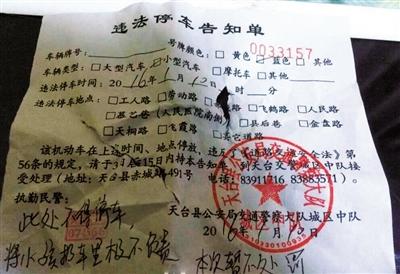 违法停车告知单
0033157
车辆牌号: 号牌颜色: □黄色 □蓝色 □其他
车辆类型: □大型汽车 □小型汽车 □摩托车 □其他
违法停车时间: 2016年1月12日 时 分
违法停车地点: □工人路 □劳动路
□飞鹤路 □人民路
(人民医院南侧) □县后巷 □金盘路
□天桐路 □飞霞路 □其它道路
该机动车在上述时间、地点停放,违反《道路交通安全法》第
56条的规定,请于3日后15日内持本告知单,到天台交警城区中队接
受处理(地址:天台县赤城路491号 电话:83911716 83883571)。
执勤民警:
天台县公安局交通警察大队城区中队
2016年1月 日
此处不得停车,
将小孩扔车里极不负责
本次暂不处罚